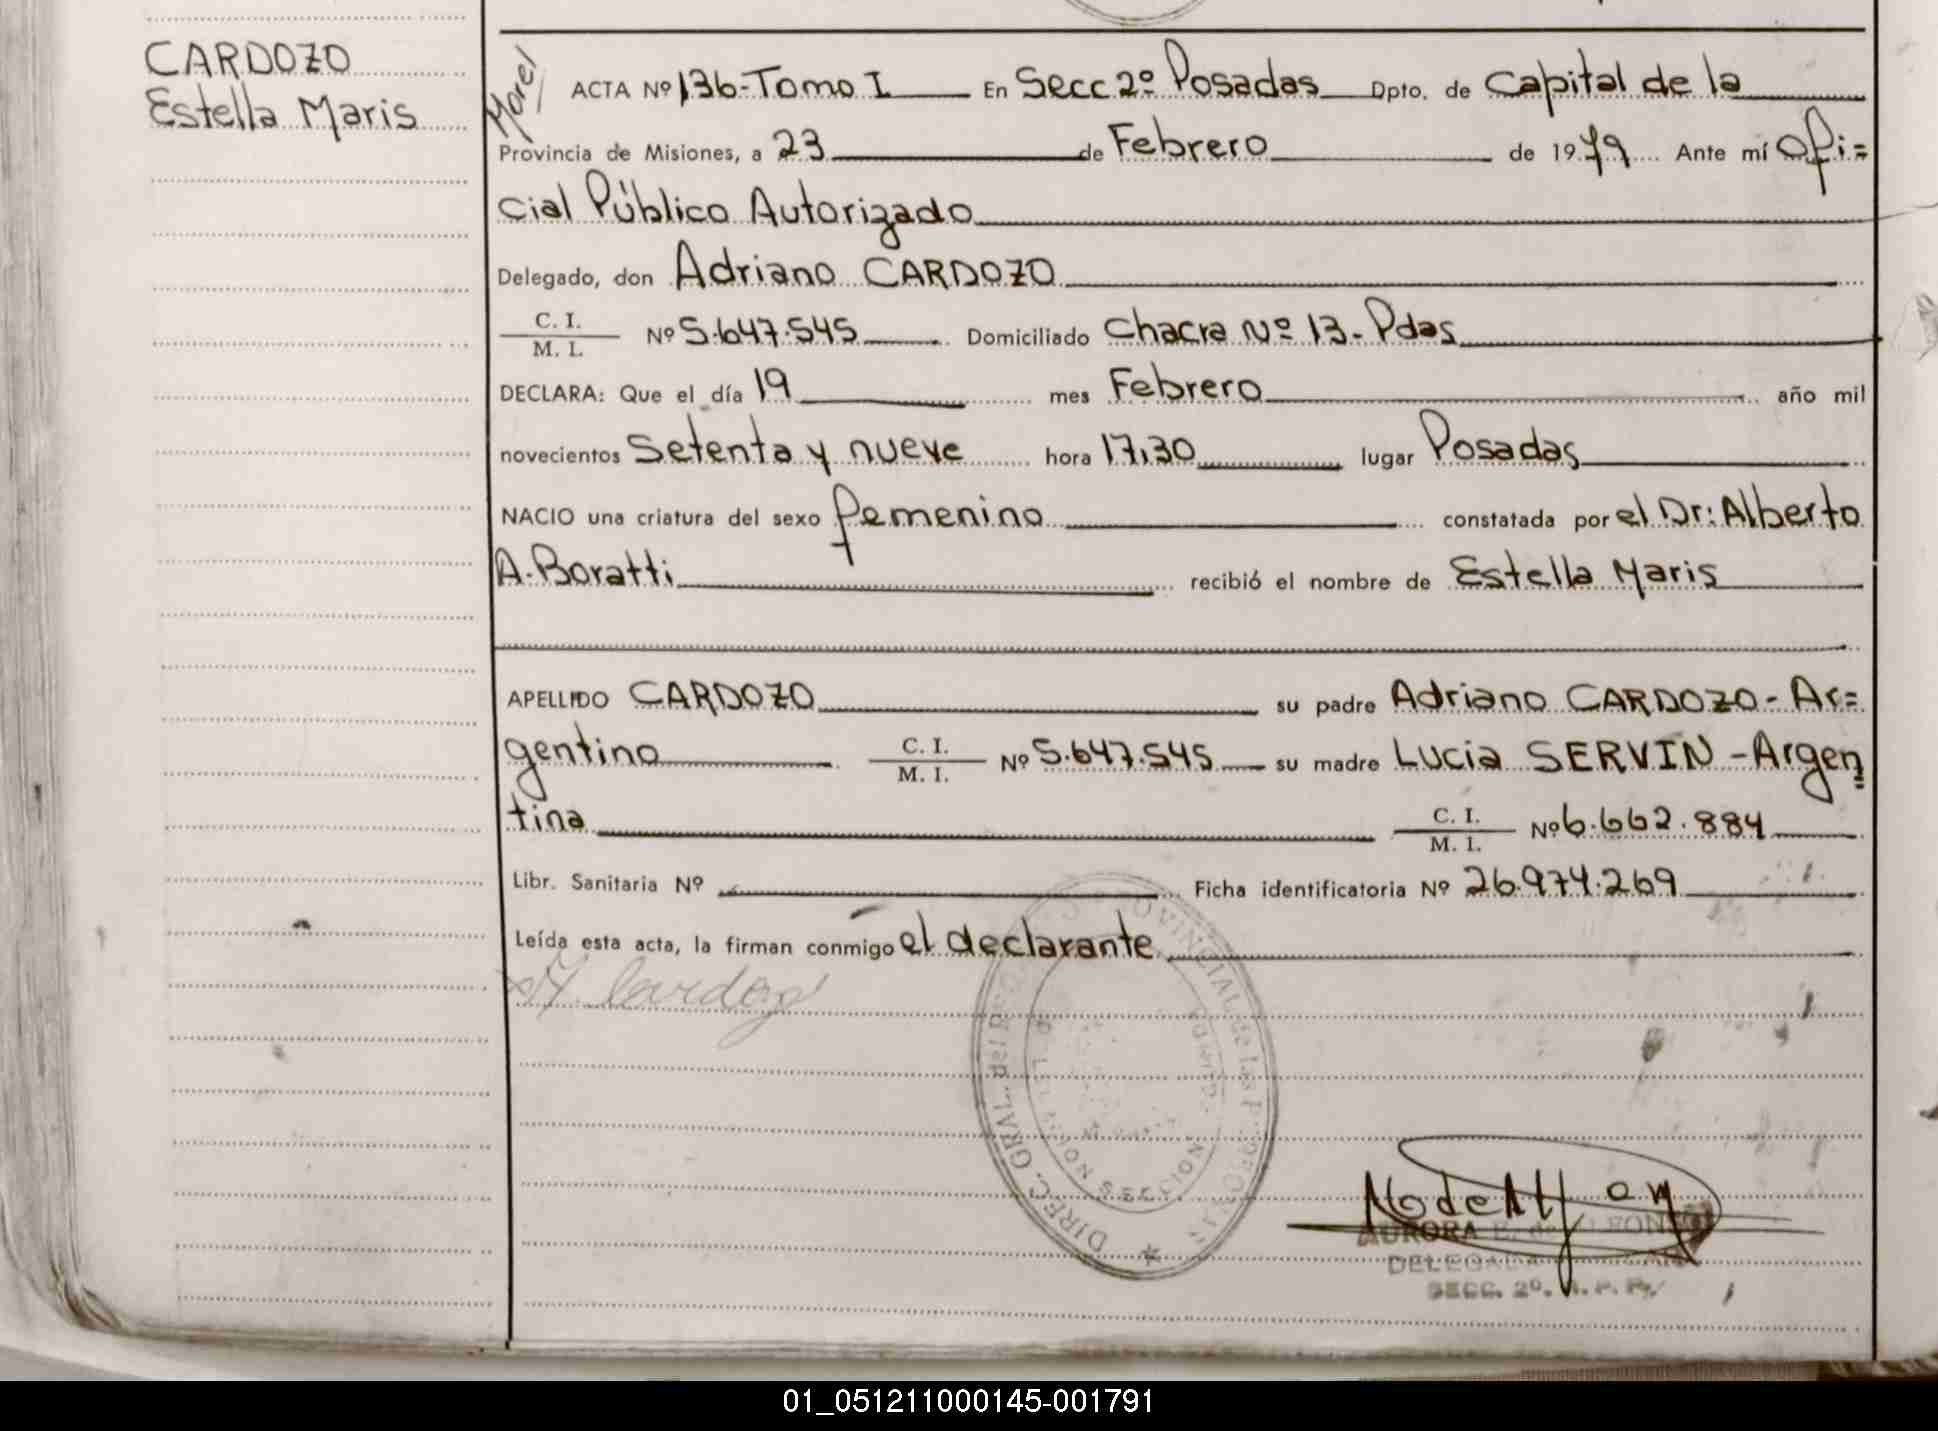 CARDOZO
Estella Maris
Morel
ACTA Nº 136-Tomo I En Secc 2º Posadas Dpto. de Capital de la
Provincia de Misiones, a 23 de Febrero de 1979 Ante mí Ofi=
cial Público Autorizado
Delegado, don Adriano CARDOZO
C. I.
M. I. Nº 5.647.545 Domiciliado Chacra Nº 13- Pdas
DECLARA: Que el día 19 mes Febrero año mil
novecientos Setenta y nueve hora 17,30 lugar Posadas
NACIO una criatura del sexo femenino constatada por el Dr: Alberto
A. Boratti recibió el nombre de Estella Maris
APELLIDO CARDOZO su padre Adriano CARDOZO - Ar=
gentino C. I.
M. I. Nº 5.647.545 su madre Lucia SERVIN - Argen=
tina C. I.
M. I. Nº 6.662.884
Libr. Sanitaria Nº Ficha identificatoria Nº 26.974.269
Leída esta acta, la firman conmigo el declarante
Cardozo
DIREC. GRAL. del PROVINCIAL de las
SECCION
AURORA E. de ALFONSO
DELEGADA
SECC. 2º. R. P. P.
01_051211000145-001791